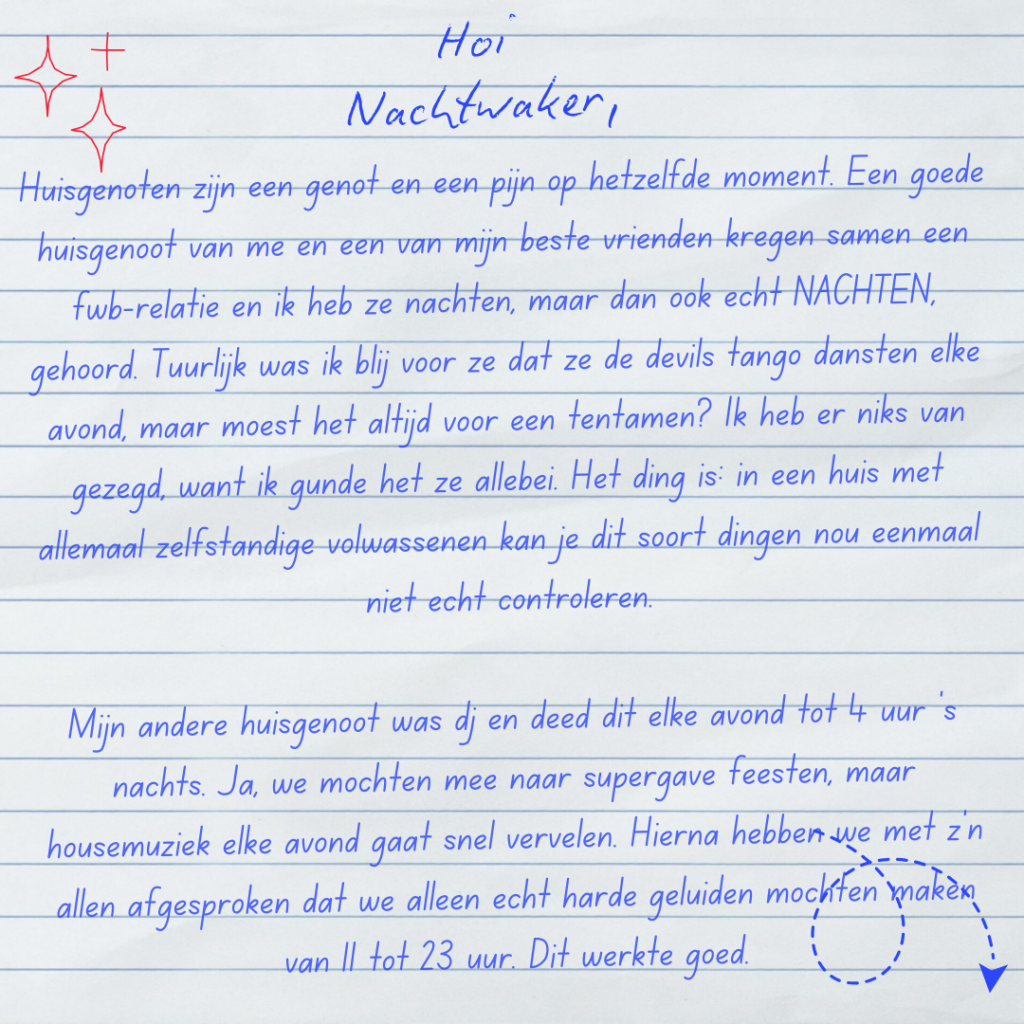 Hoi
Nachtwaker,
Huisgenoten zijn een genot en een pijn op hetzelfde moment. Een goede
huisgenoot van me en een van mijn beste vrienden kregen samen een
fwb-relatie en ik heb ze nachten, maar dan ook echt NACHTEN,
gehoord. Tuurlijk was ik blij voor ze dat ze de devils tango dansten elke
avond, maar moest het altijd voor een tentamen? Ik heb er niks van
gezegd, want ik gunde het ze allebei. Het ding is: in een huis met
allemaal zelfstandige volwassenen kan je dit soort dingen nou eenmaal
niet echt controleren.
Mijn andere huisgenoot was dj en deed dit elke avond tot 4 uur 's
nachts. Ja, we mochten mee naar supergave feesten, maar
housemuziek elke avond gaat snel vervelen. Hierna hebben we met z'n
allen afgesproken dat we alleen echt harde geluiden mochten maken
van 11 tot 23 uur. Dit werkte goed.